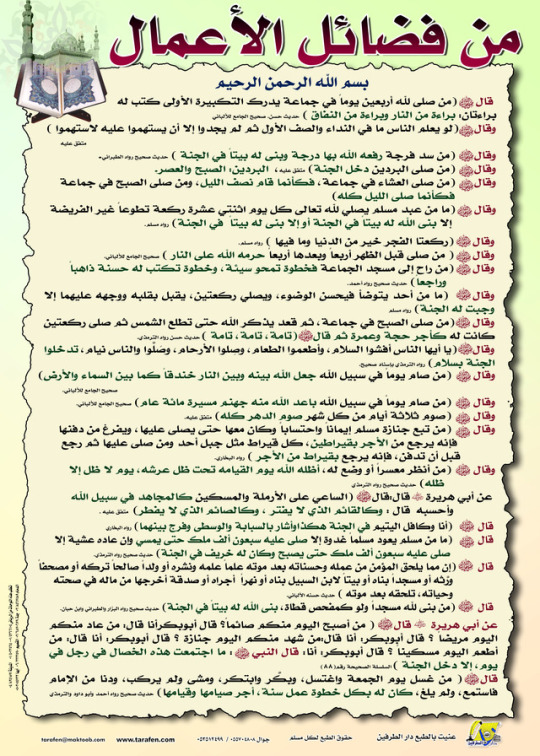 من فضائل الأعمال
بسم الله الرحمن الرحيم
قال ﷺ (من صلى لله أربعين يوماً في جماعة يدرك التكبيرة الأولى كتب له
براءتان: براءة من النار وبراءة من النفاق) حديث حسن. صحيح الجامع للألباني
وقال ﷺ (لو يعلم الناس ما في النداء والصف الأول ثم لم يجدوا إلا أن يستهموا عليه لاستهموا)
متفق عليه
وقال ﷺ (من سد فرجة رفعه الله بها درجة وبنى له بيتاً في الجنة) حديث صحيح رواه الطبراني.
وقال ﷺ (من صلى البردين دخل الجنة) متفق عليه، البردين: الصبح والعصر.
وقال ﷺ (من صلى العشاء في جماعة، فكأنما قام نصف الليل، ومن صلى الصبح في جماعة
فكأنما صلى الليل كله)
وقال ﷺ (ما من عبد مسلم يصلي لله تعالى كل يوم اثنتي عشرة ركعة تطوعاً غير الفريضة
إلا بنى الله له بيتاً في الجنة أو إلا بني له بيتاً في الجنة) رواه مسلم.
وقال ﷺ (ركعتا الفجر خير من الدنيا وما فيها) رواه مسلم.
وقال ﷺ (من صلى قبل الظهر أربعاً وبعدها أربعاً حرمه الله على النار) صحيح الجامع للألباني.
وقال ﷺ (من راح إلى مسجد الجماعة فخطوة تمحو سيئة، وخطوة تكتب له حسنة ذاهباً
وراجعاً) حديث صحيح رواه أحمد.
وقال ﷺ (ما من أحد يتوضأ فيحسن الوضوء، ويصلي ركعتين، يقبل بقلبه ووجهه عليهما إلا
وجبت له الجنة) رواه مسلم
وقال ﷺ (من صلى الصبح في جماعة، ثم قعد يذكر الله حتى تطلع الشمس ثم صلى ركعتين
كانت له كأجر حجة وعمرة ثم قال ﷺ (تامة، تامة، تامة) حديث حسن رواه الترمذي.
وقال ﷺ (يا أيها الناس أفشوا السلام، وأطعموا الطعام، وصلوا الأرحام، وصلوا والناس نيام، تدخلوا
الجنة بسلام) رواه الترمذي بإسناد صحيح.
وقال ﷺ (من صام يوماً في سبيل الله جعل الله بينه وبين النار خندقاً كما بين السماء والأرض)
صحيح الجامع للألباني.
وقال ﷺ (من صام يوماً في سبيل الله باعد الله منه جهنم مسيرة مائة عام) صحيح الجامع للألباني.
وقال ﷺ (صوم ثلاثة أيام من كل شهر صوم الدهر كله) متفق عليه.
وقال ﷺ (من تبع جنازة مسلم إيمانا واحتسابا وكان معها حتى يصلى عليها، ويفرغ من دفنها
فإنه يرجع من الأجر بقيراطين، كل قيراط مثل جبل أحد ومن صلى عليها ثم رجع
قبل أن تدفن، فإنه يرجع بقيراط من الأجر) رواه البخاري.
وقال ﷺ (من أنظر معسراً أو وضع له، أظله الله يوم القيامه تحت ظل عرشه، يوم لا ظل إلا
ظله) حديث صحيح رواه الترمذي
عن أبي هريرة قال:قال ﷺ (الساعي على الأرملة والمسكين كالمجاهد في سبيل الله
وأحسبه قال: وكالقائم الذي لا يفتر، وكالصائم الذي لا يفطر) متفق عليه.
قال ﷺ (أنا وكافل اليتيم في الجنة هكذا وأشار بالسبابة والوسطى وفرج بينهما) رواه البخاري
قال ﷺ (ما من مسلم يعود مسلماً غدوة إلا صلى عليه سبعون ألف ملك حتى يمسي وإن عاده عشية إلا
صلى عليه سبعون ألف ملك حتى يصبح وكان له خريف في الجنة) حديث صحيح رواه الترمذي
قال ﷺ (إن مما يلحق المؤمن من عمله وحسناته بعد موته علما علمه ونشره أو ولداً صالحا تركه أو مصحفاً
ورثه أو مسجداً بناه أو بيتاً لابن السبيل بناه أو نهراً أجراه أو صدقة أخرجها من ماله في صحته
وحياته، تلحقه بعد موته) حديث حسنه الألباني.
قال ﷺ (من بنى لله مسجداً ولو كمفحص قطاة، بنى الله له بيتاً في الجنة) حديث صحيح رواه البزار والطبراني وابن حبان.
عن أبي هريرة قال ﷺ (من أصبح اليوم منكم صائما؟ قال أبوبكر: أنا قال: من عاد منكم
اليوم مريضا؟ قال أبوبكر: أنا قال:من شهد منكم اليوم جنازة؟ قال أبوبكر: أنا قال: من
أطعم اليوم مسكينا؟ قال أبوبكر: أنا: قال النبي ﷺ: ما اجتمعت هذه الخصال في رجل في
يوم، إلا دخل الجنة) السلسلة الصحيحة رقم (٨٨)
قال ﷺ (من غسل يوم الجمعة واغتسل، وبكر وابتكر، ومشى ولم يركب، ودنا من الإمام
فاستمع، ولم يلغ، كان له بكل خطوة عمل سنة، أجر صيامها وقيامها) حديث صحيح رواه أحمد وأبو داود والترمذي
عنيت بالطبع دار الطرفين
حقوق الطبع لكل مسلم
www.tarafen.com
tarafen@maktoob.com